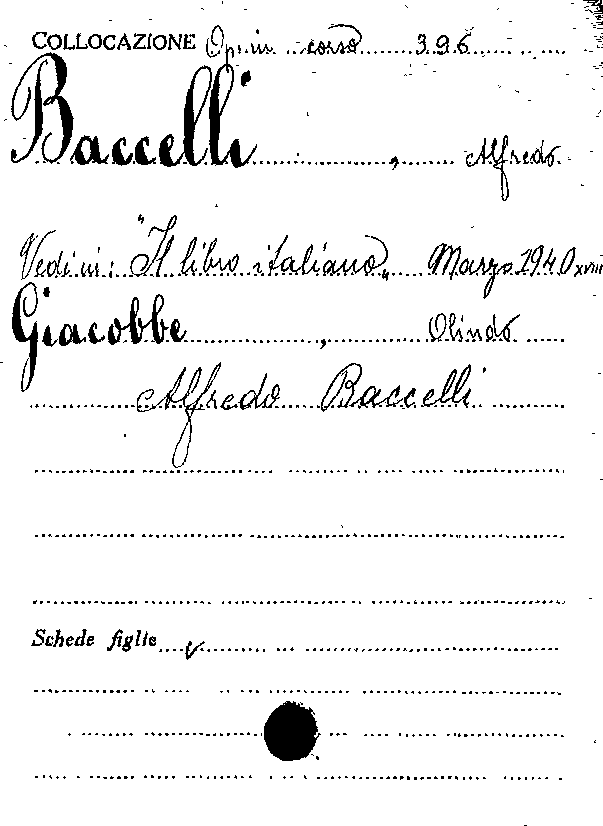 COLLOCAZIONE Op. in corso 396
Baccelli, Alfredo
Vedi in: "Il libro italiano„ Marzo 1940 XVIII
Giacobbe, Olindo
Alfredo Baccelli
Schede figlie v